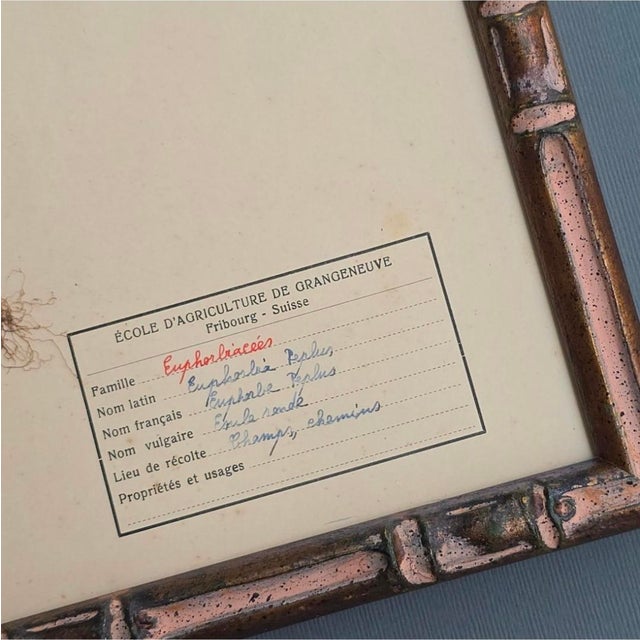 ÉCOLE D'AGRICULTURE DE GRANGENEUVE
Fribourg - Suisse
Famille Euphorbiaceés
Nom latin Euphorbia Peplus
Nom français Euphorbe Peplus
Nom vulgaire Esule ronde
Lieu de récolte Champs, chemins
Propriétés et usages